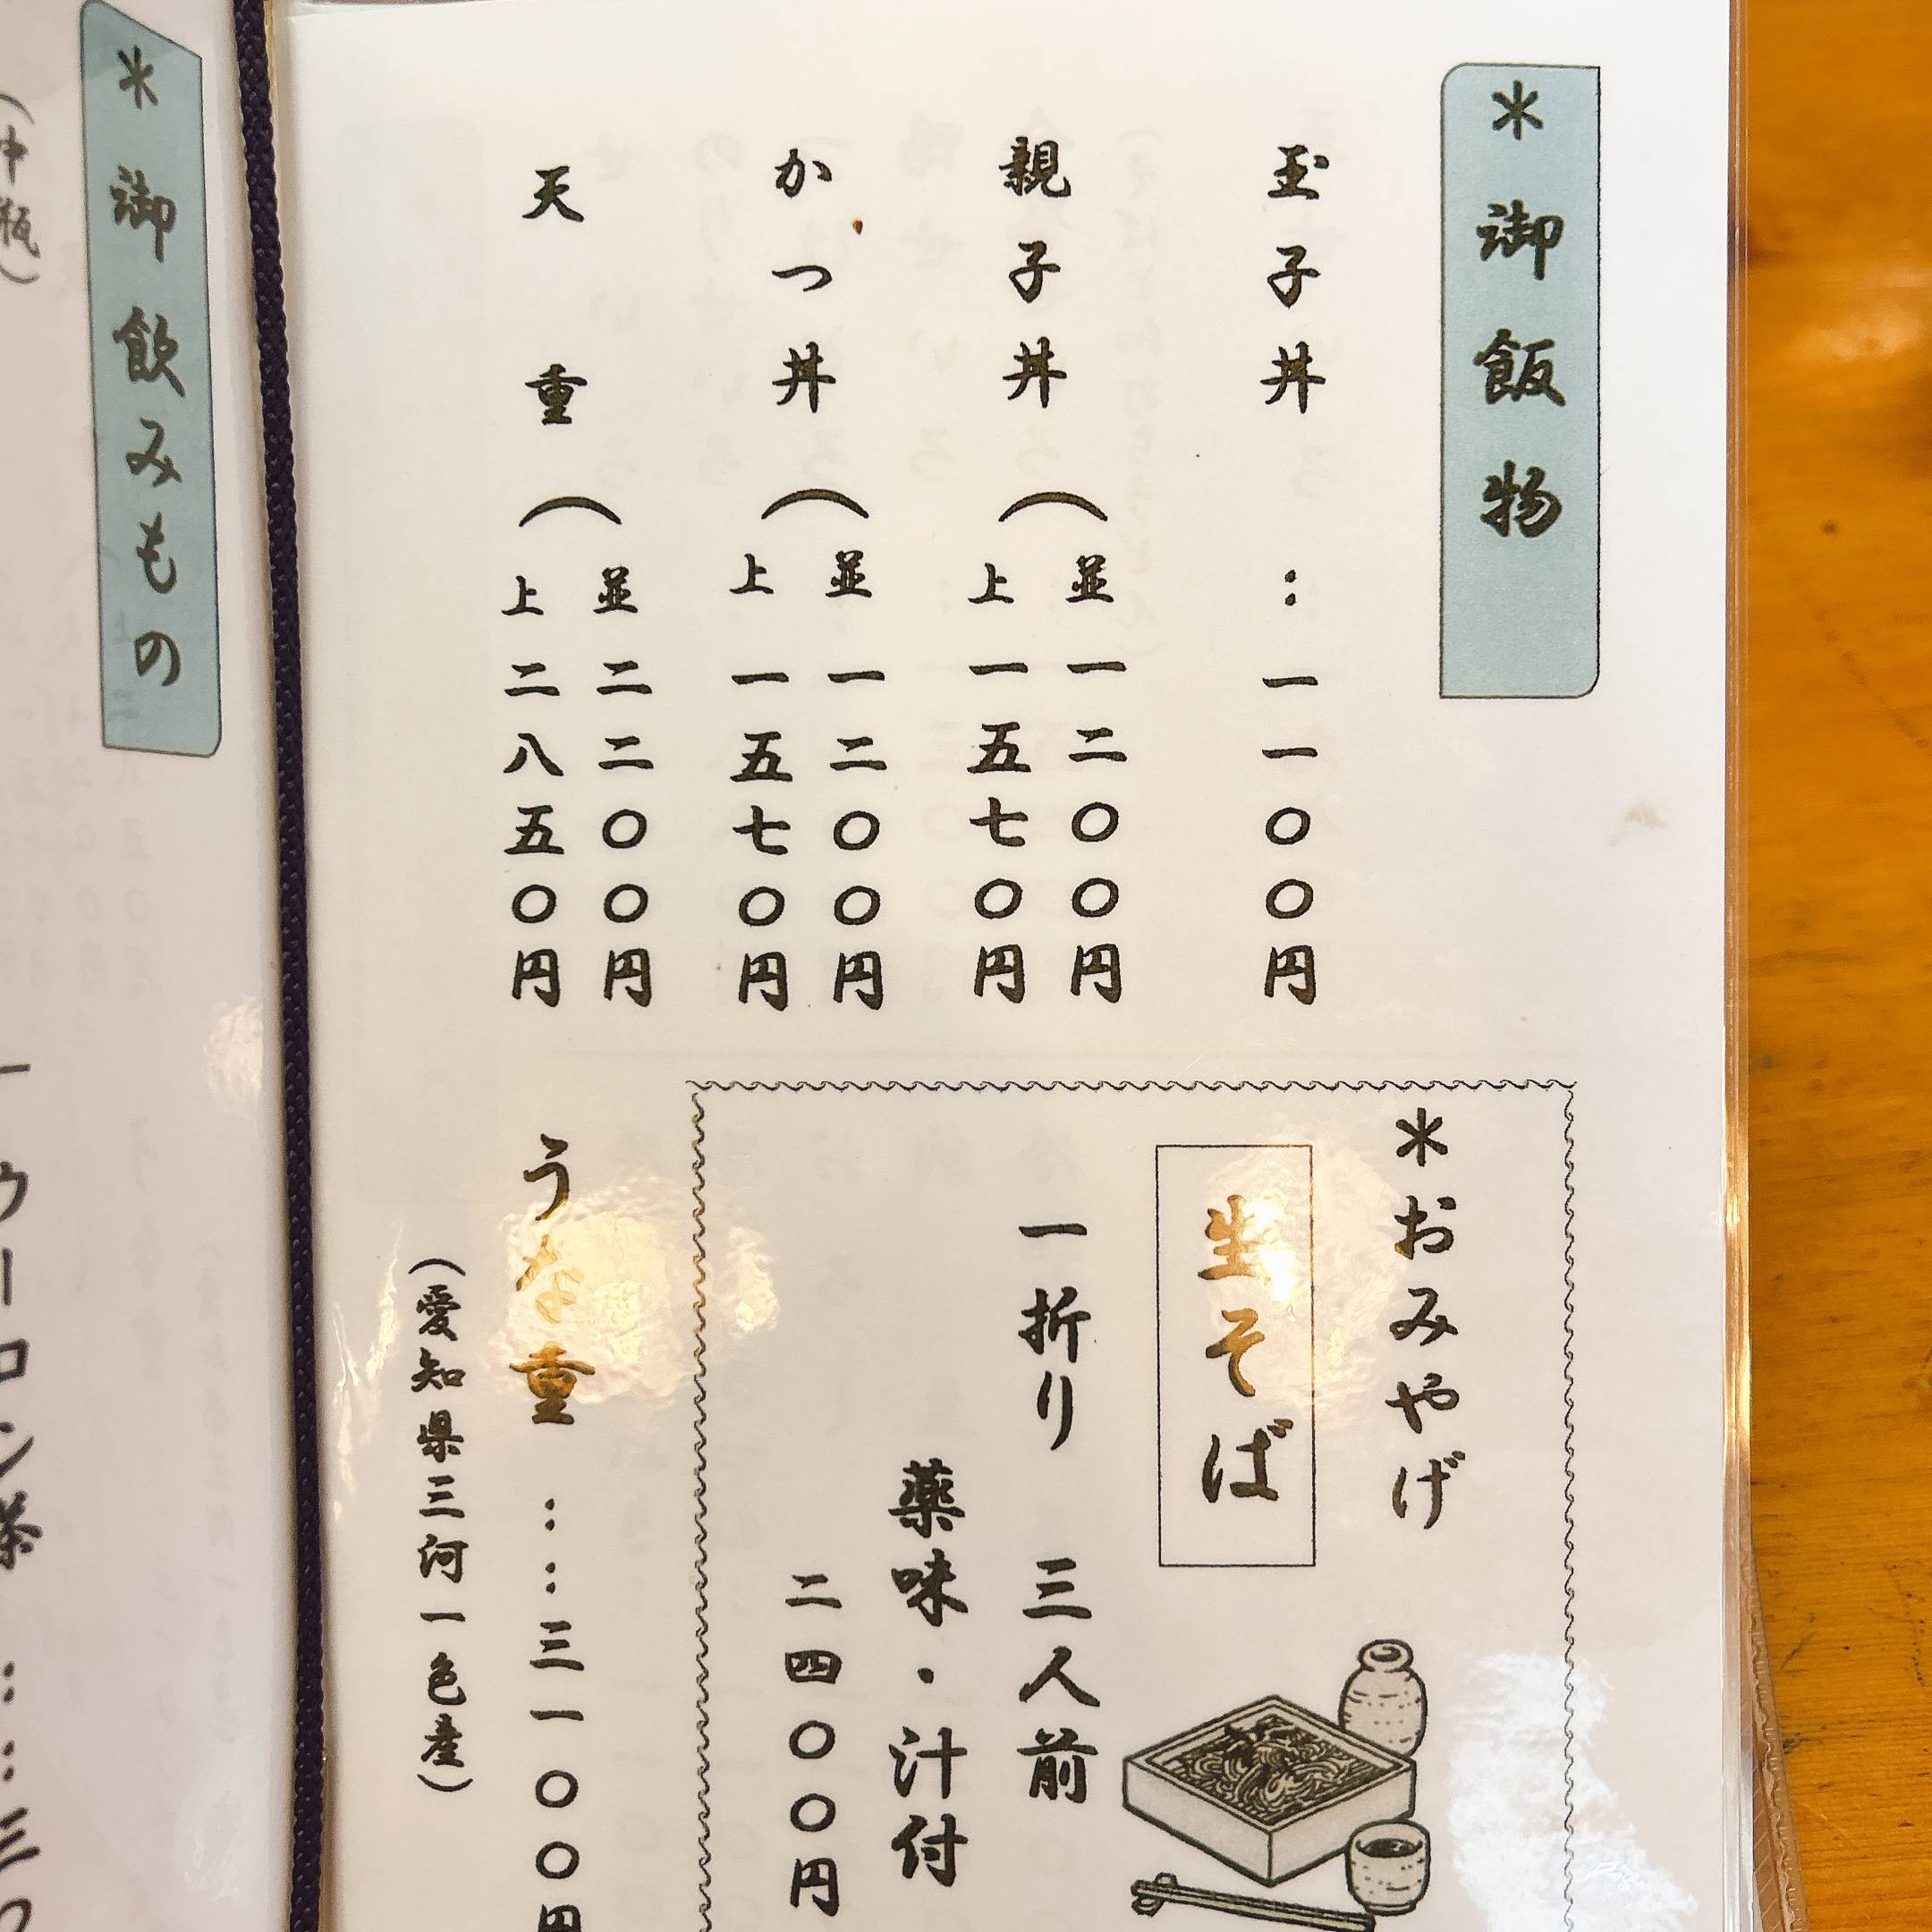 ＊御飯物
玉子丼 : 一一〇〇円
親子丼（
並 一二〇〇円
上 一五七〇円
かつ丼（
並 一二〇〇円
上 一五七〇円
天重（
並 二二〇〇円
上 二八五〇円
＊おみやげ
生そば
一折り 三人前
薬味・汁付
二四〇〇円
うな重 ：：三一〇〇円
（愛知県三河一色産）
＊御飲みもの
（中瓶）
ウーロン茶 ：：三